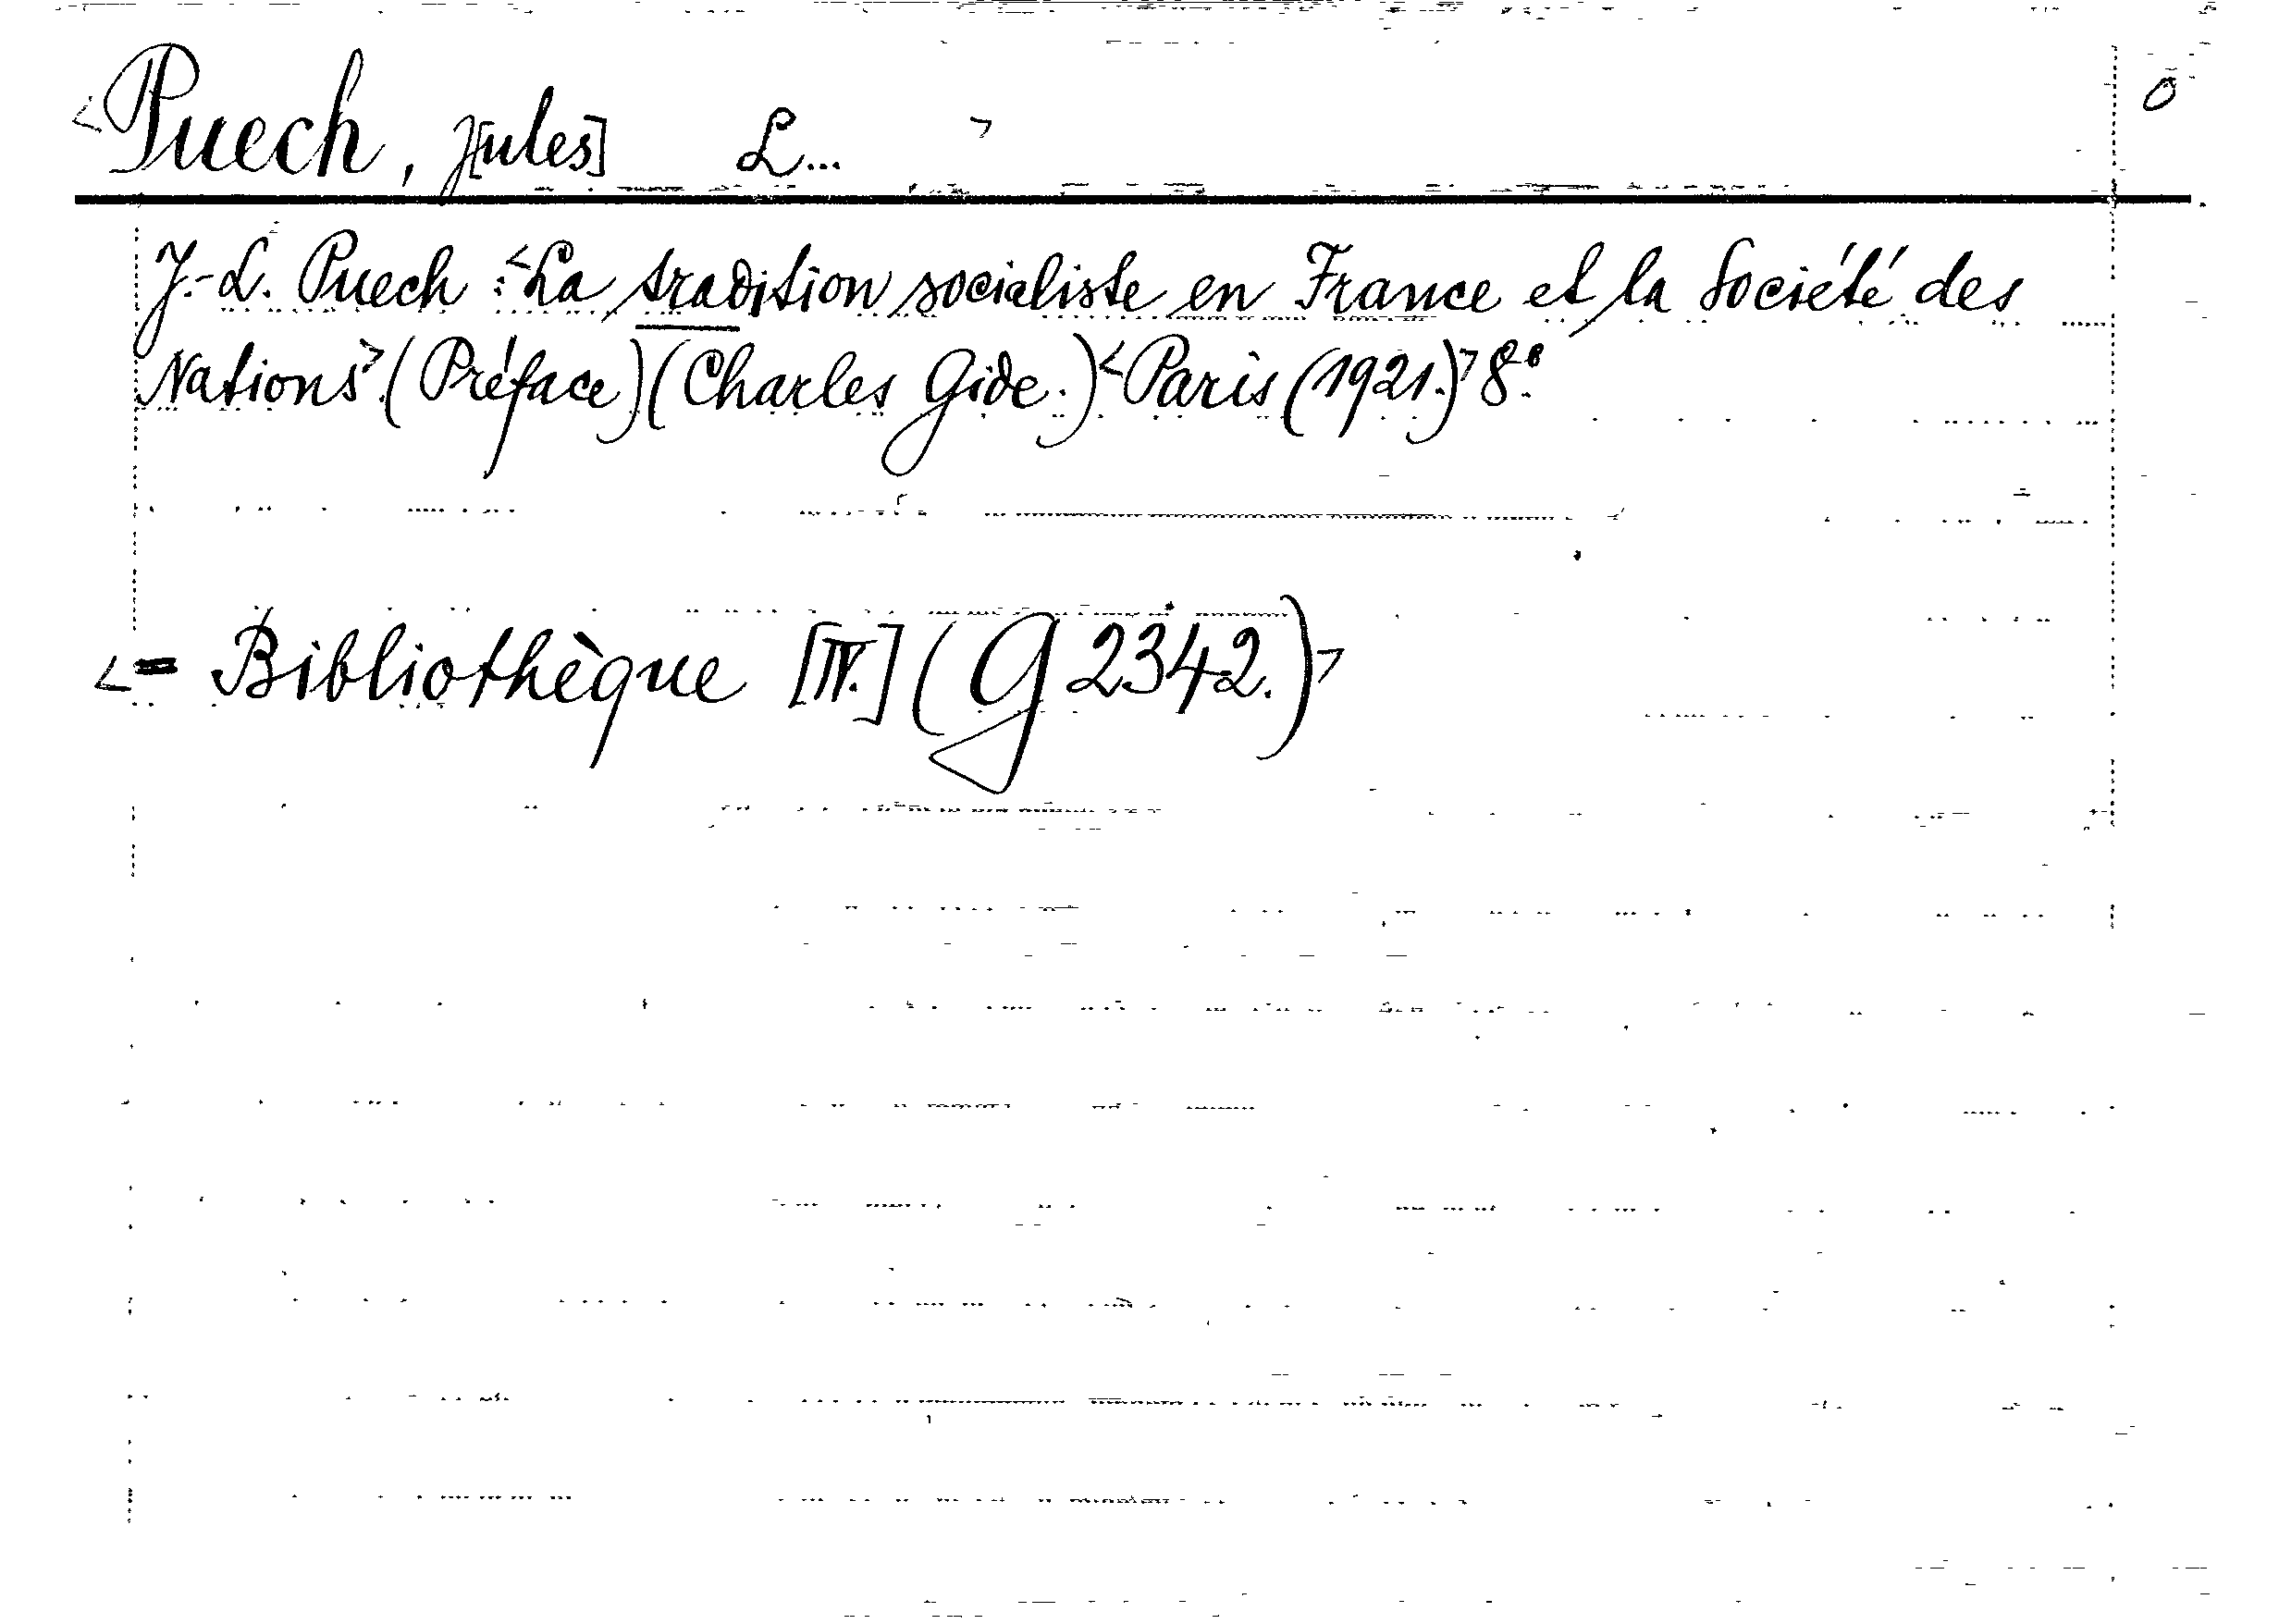 <Puech, J[ules] L... > 0
J.-L. Puech : <La tradition socialiste en France et la Société des
Nations>. (Préface) (Charles Gide.) <Paris (1921.)> 8°.
<= Bibliothèque [IV.] (G 2342.)>